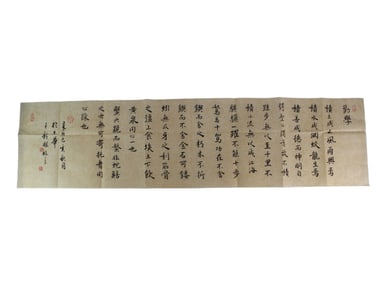 勸學
積土成山風雨興焉
積水成淵蛟龍生焉
積善成德而神明自
得聖心備焉故不積
跬步無以至千里不
積小流無以成江海
騏驥一躍不能十步
駑馬十駕功在不舍
鍥而舍之朽木不折
鍥而不舍金石可鏤
蚓無爪牙之利筋骨
之強上食埃土下飲
黃泉用心一也
蟹六跪而螯非蛇鱔
之穴無可寄託者用
心躁也
己亥秋月